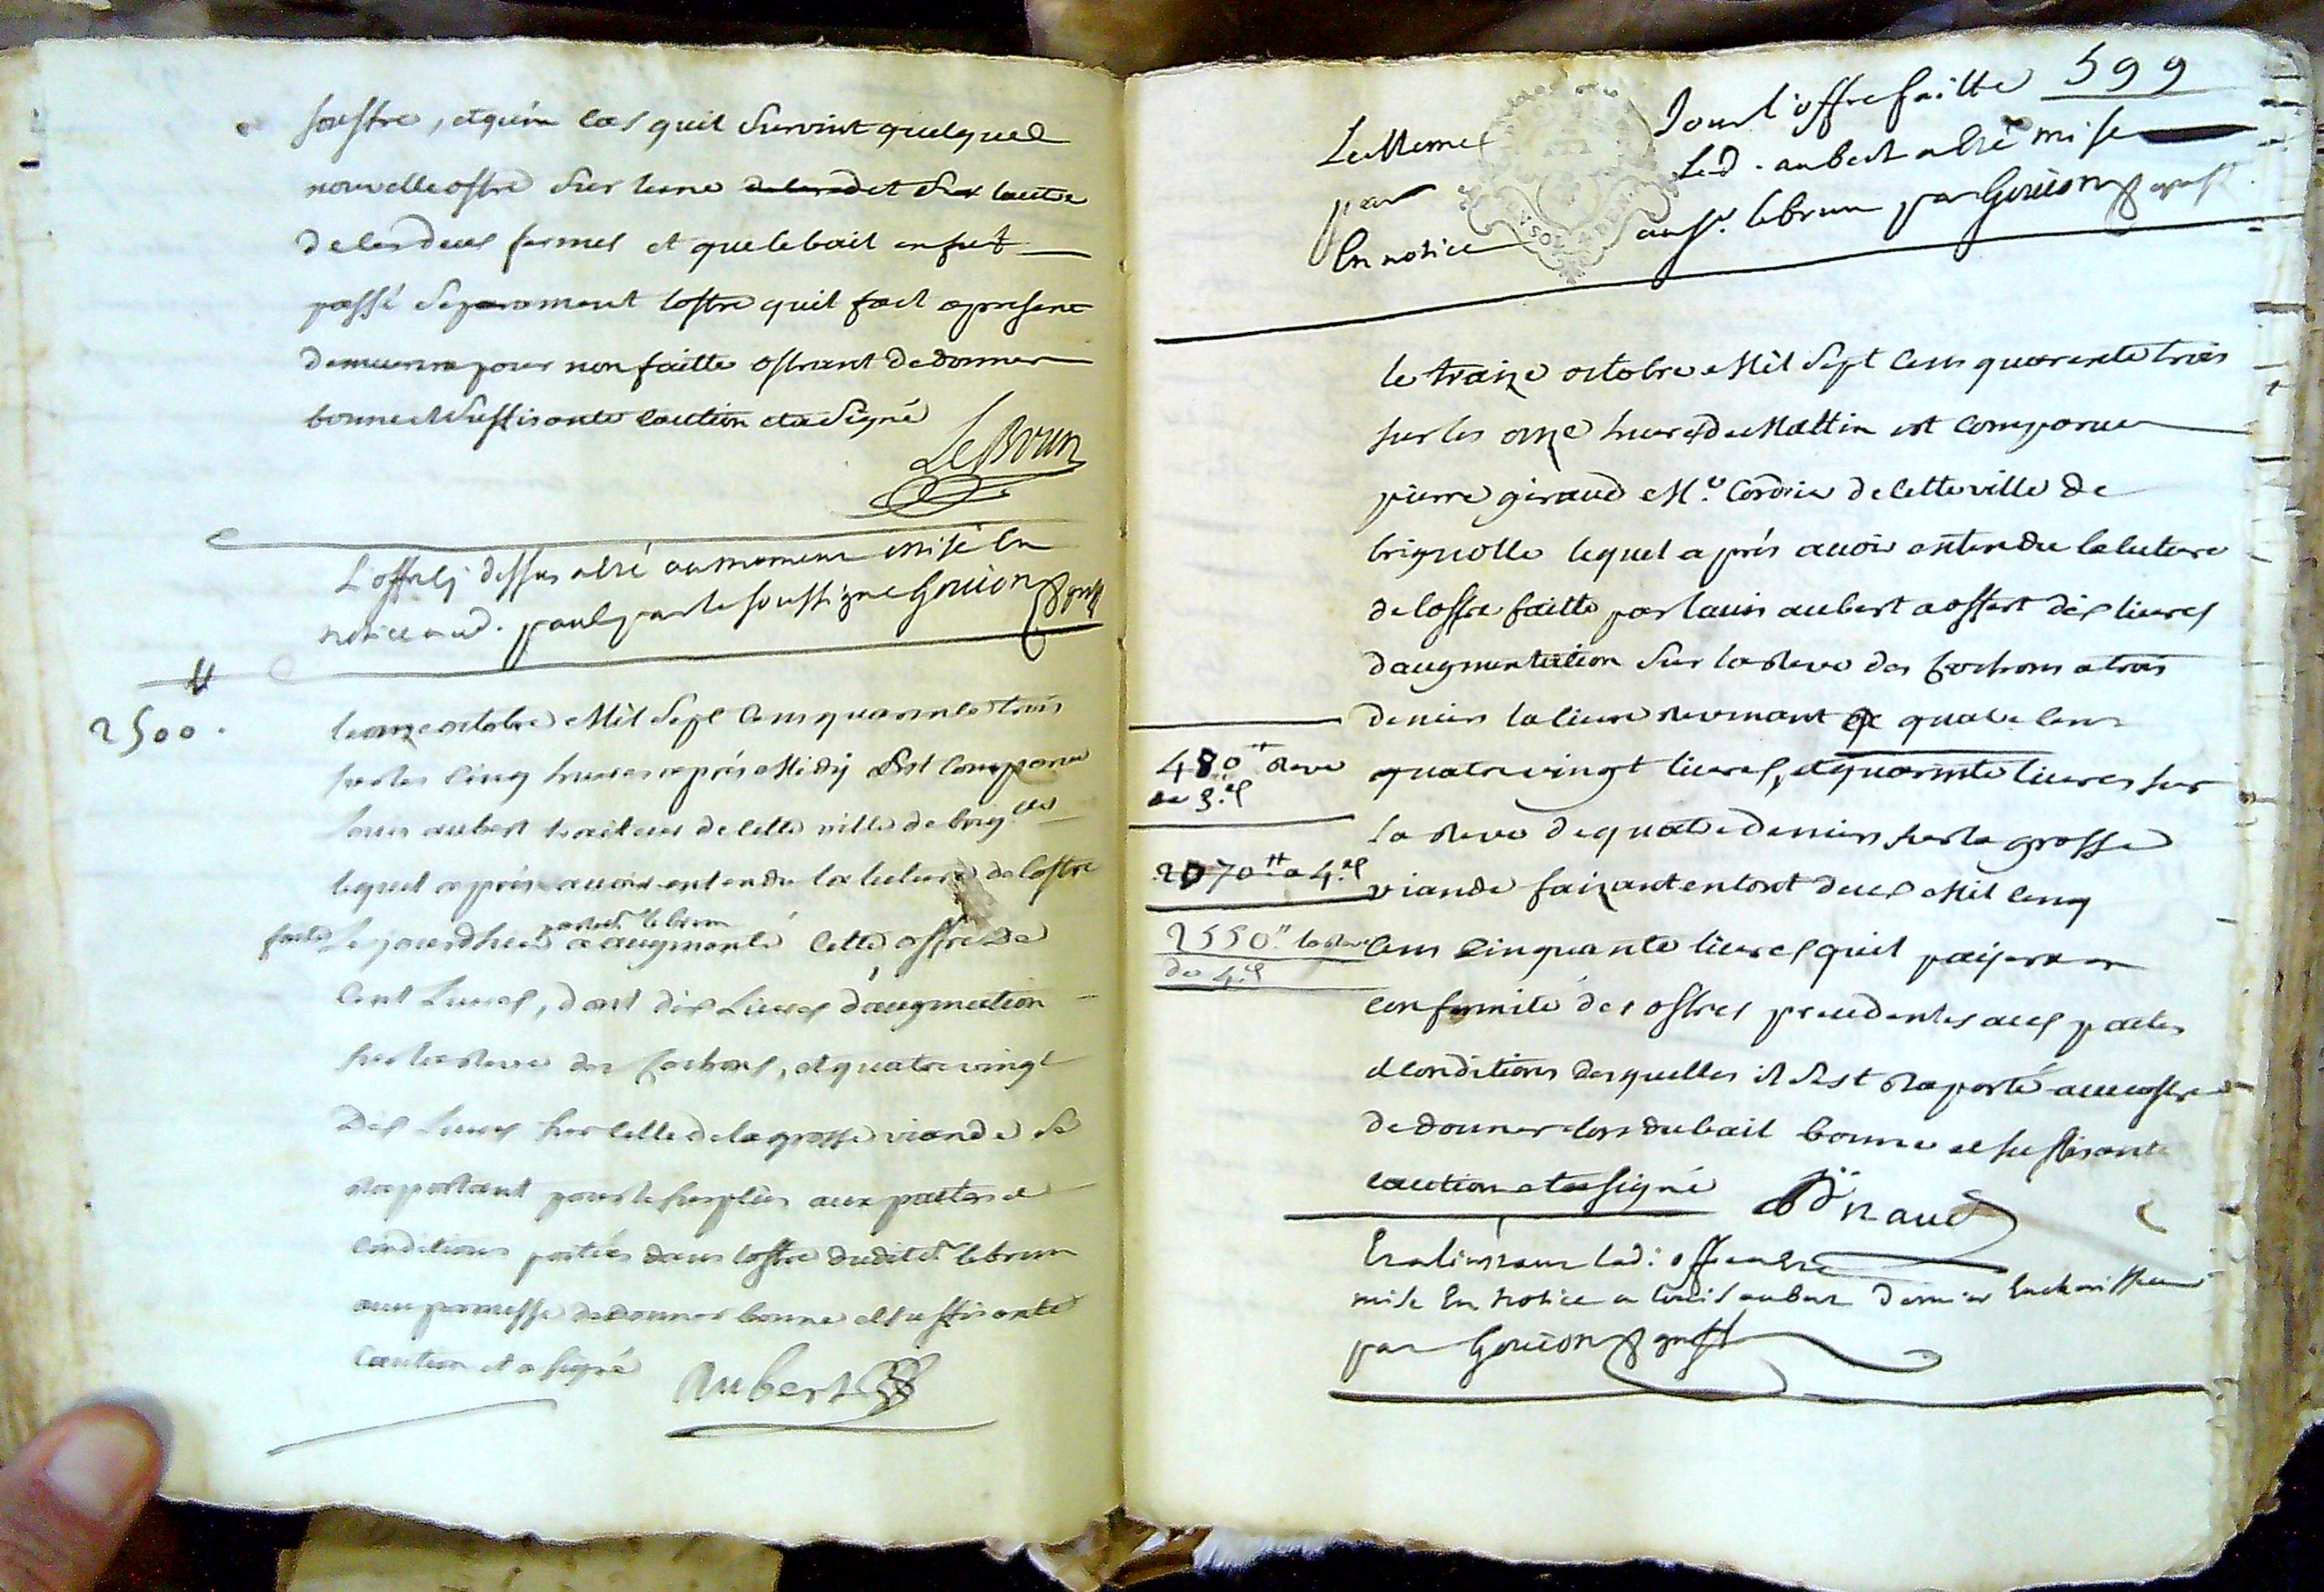 soffre, et qu'en cas quil survint quelques
nouvelle offre sur lune et sur lautre
de les deux fermes et que le bail en fut
passé separement loffre quil fait apresent
demeurera pour non faitte offrant de donner
bonne et suffisante caution et a signé
LeBrun
L'offre cy dessus a ésté au moment mise En
notice aud. paul par le soussigne Gouion greff
2500.
le onze octobre Mil Sept Cens quarante trois
sur les cinq heures aprés Midy Est Comparu
louis aubert traiteur de cette ville de brig.les
lequel aprés avoir entendu la lecture de loffre
par led.t lebrun
faite le jourdhuy a augmenté cette offre de
Cent Livres, dont dix Livres d'augmentation
sur la reve des Cochons, et quatre vingt
Dix Livres sur celle de la grosse viande se
raportant pour le surplus aux pactes et
conditions portées dans loffre dudit s.r lebrun
avec promesse de donner bonne et suffisante
Caution et a signé Aubert
599
Le Meme Jour l'offre faitte
par Led. aubert a esté mise
En notice au s.r lebrun par Gouion greff
le traize octobre Mil Sept Cens quarante trois
sur les onze heures du Mattin est Comparu
pierre giraud M.e Cordier de cette ville de
brignolle lequel aprés avoir entendu la lecture
de loffre faitte par louis aubert a offert dix livres
daugmentation sur la reve des Cochons a trois
deniers la livre revenant a quatre cens
480.tt reve
de 3.d
quatre vingt livres, et quarante livres sur
la reve de quatre deniers sur la grosse
2070.tt a 4.d
viande faizant en tout deux Mil Cinq
2550.tt la reve
de 4.d
Cens Cinquante livres quil paijera en
conformité des offres precedentes aux pactes
et conditions desquelles il sest raporté avec offre
de donner lors du bail bonne et suffisante
caution et a signé
Et a linstant lad. offre a Esté
mise En notice a louis aubert dernier Encherisseur
par Gouion greff